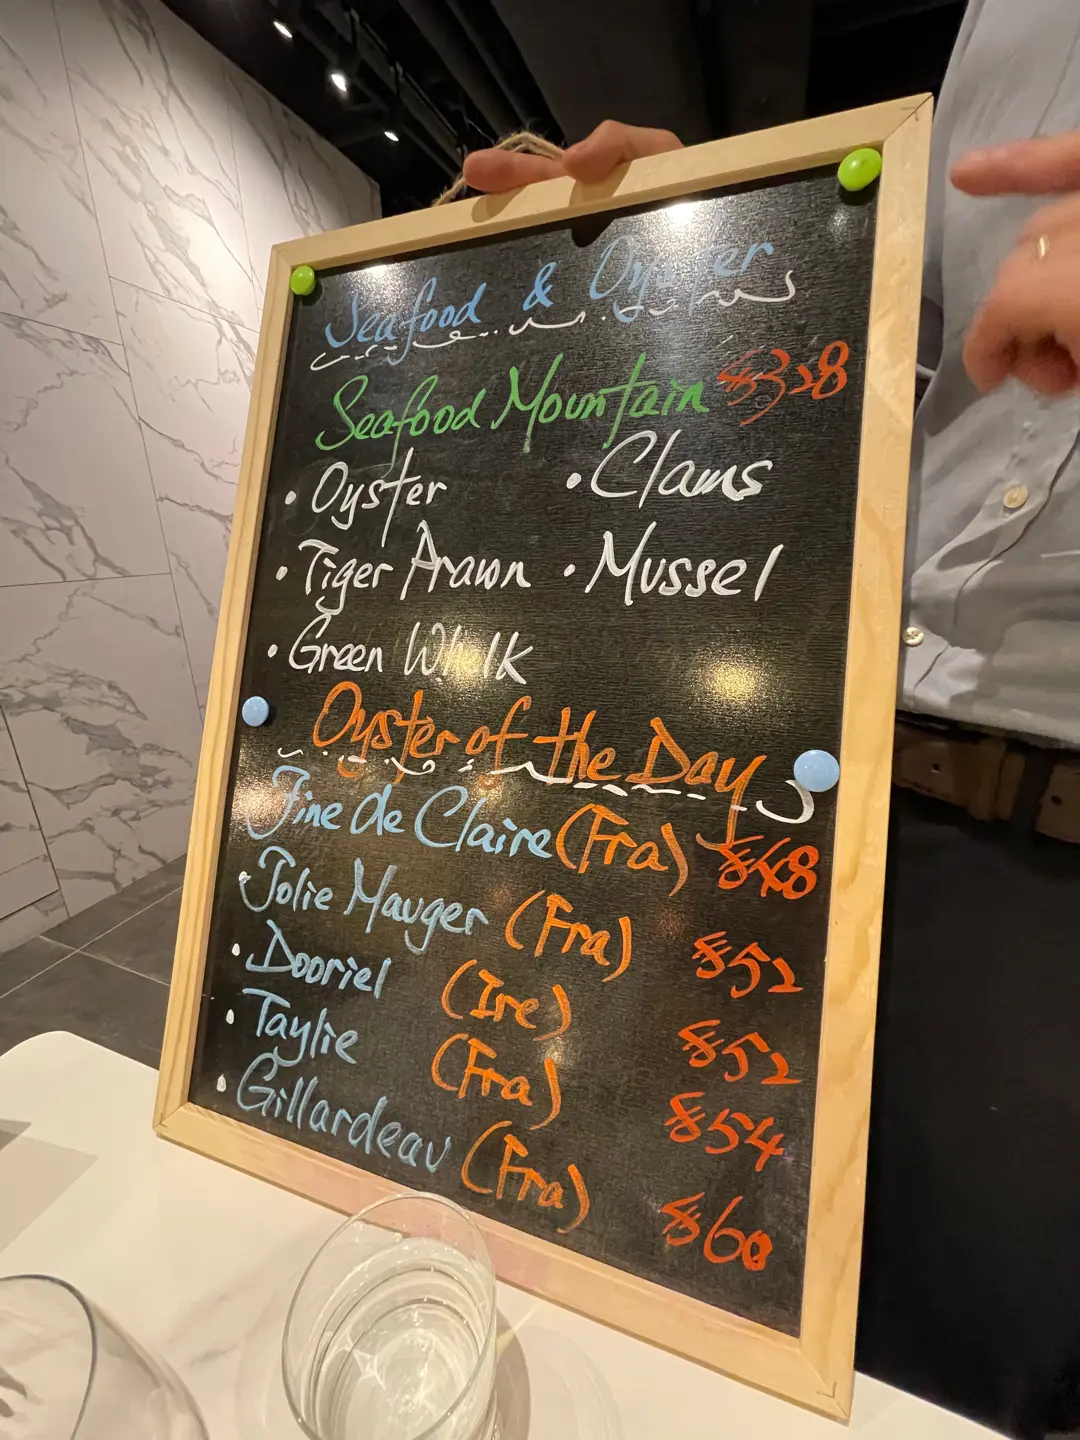 Seafood & Oyster
Seafood Mountain $328
• Oyster • Clams
• Tiger Prawn • Mussel
• Green Whelk
Oyster of the Day
Fine de Claire (Fra) $48
• Jolie Mauger (Fra) $52
• Dooriel (Ire) $52
• Taylie (Fra) $54
• Gillardeau (Fra) $60